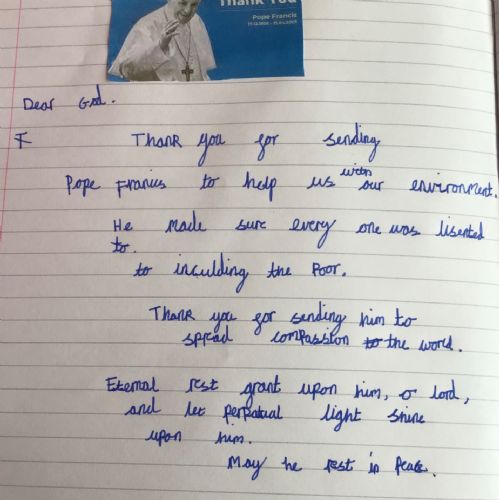 Thank You
Pope Francis
Dear God.
F
Thank you for sending
Pope Francis to help us with our environment.
He made sure every one was lisented
to.
to inculding the Poor.
Thank you for sending him to
spread compassion to the world.
Eternal rest grant upon him, o lord,
and let perpatual light shine
upon him.
May he rest in Peace.